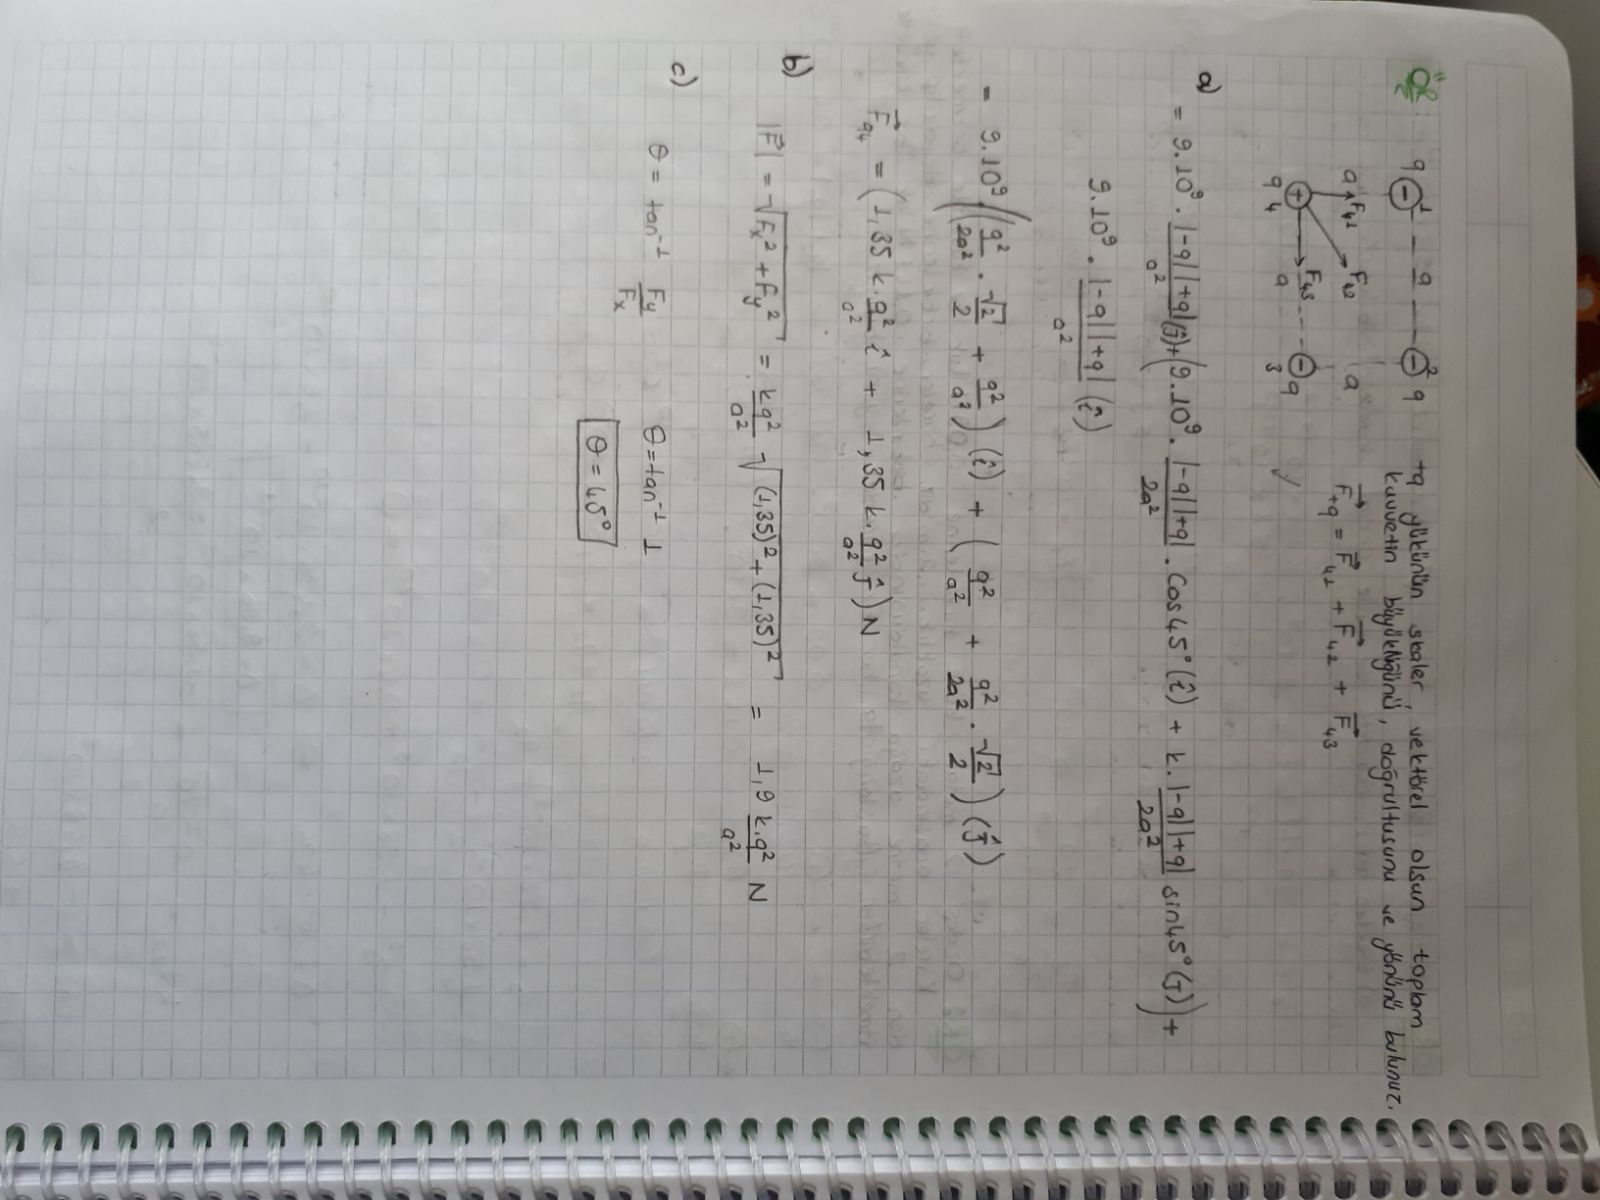 ÖR:
q ⊖ 1 — a — ⊖ 2 q
+q yükünün skaler, vektörel olsun toplam
kuvvetin büyüklüğünü, doğrultusunu ve yönünü bulunuz.
a F₄₁ F₄₂ a
F⃗₊q = F⃗₄₁ + F⃗₄₂ + F⃗₄₃
⊕ F₄₃ ⊖ q
q 4 a 3
a)
= 9.10⁹ . |-q||+q|/a² (ĵ) + (9.10⁹ . |-q||+q|/2a² . Cos45°(î) + k. |-q||+q|/2a² sin45°(J)) +
9.10⁹ . |-q||+q|/a² (î)
= 9.10⁹ ((q²/2a² . √2/2 + q²/a²) (î) + (q²/a² + q²/2a² . √2/2) (Ĵ)
F⃗q₄ = (1,35 k.q²/a² î + 1,35 k.q²/a² Ĵ) N
b)
|F⃗| = √(Fx² + Fy²) = kq²/a² √((1,35)² + (1,35)²) = 1,9 k.q²/a² N
c)
θ = tan⁻¹ Fy/Fx θ = tan⁻¹ 1
θ = 45°